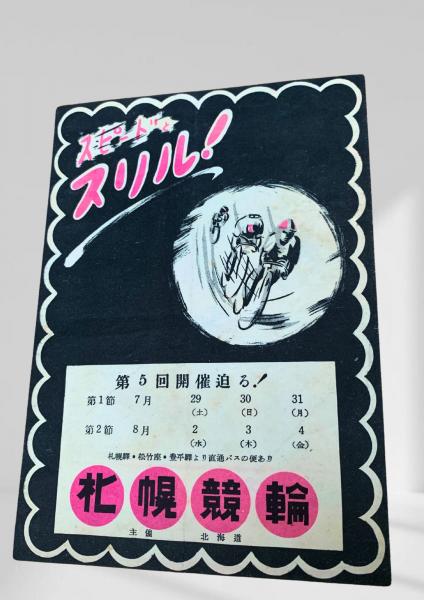 スピードと
スリル!
第5回開催迫る!
第1節 7月 29 30 31
(土) (日) (月)
第2節 8月 2 3 4
(水) (木) (金)
札幌驛・松竹座・豊平驛より直通バスの便あり
札幌競輪
主催 北海道